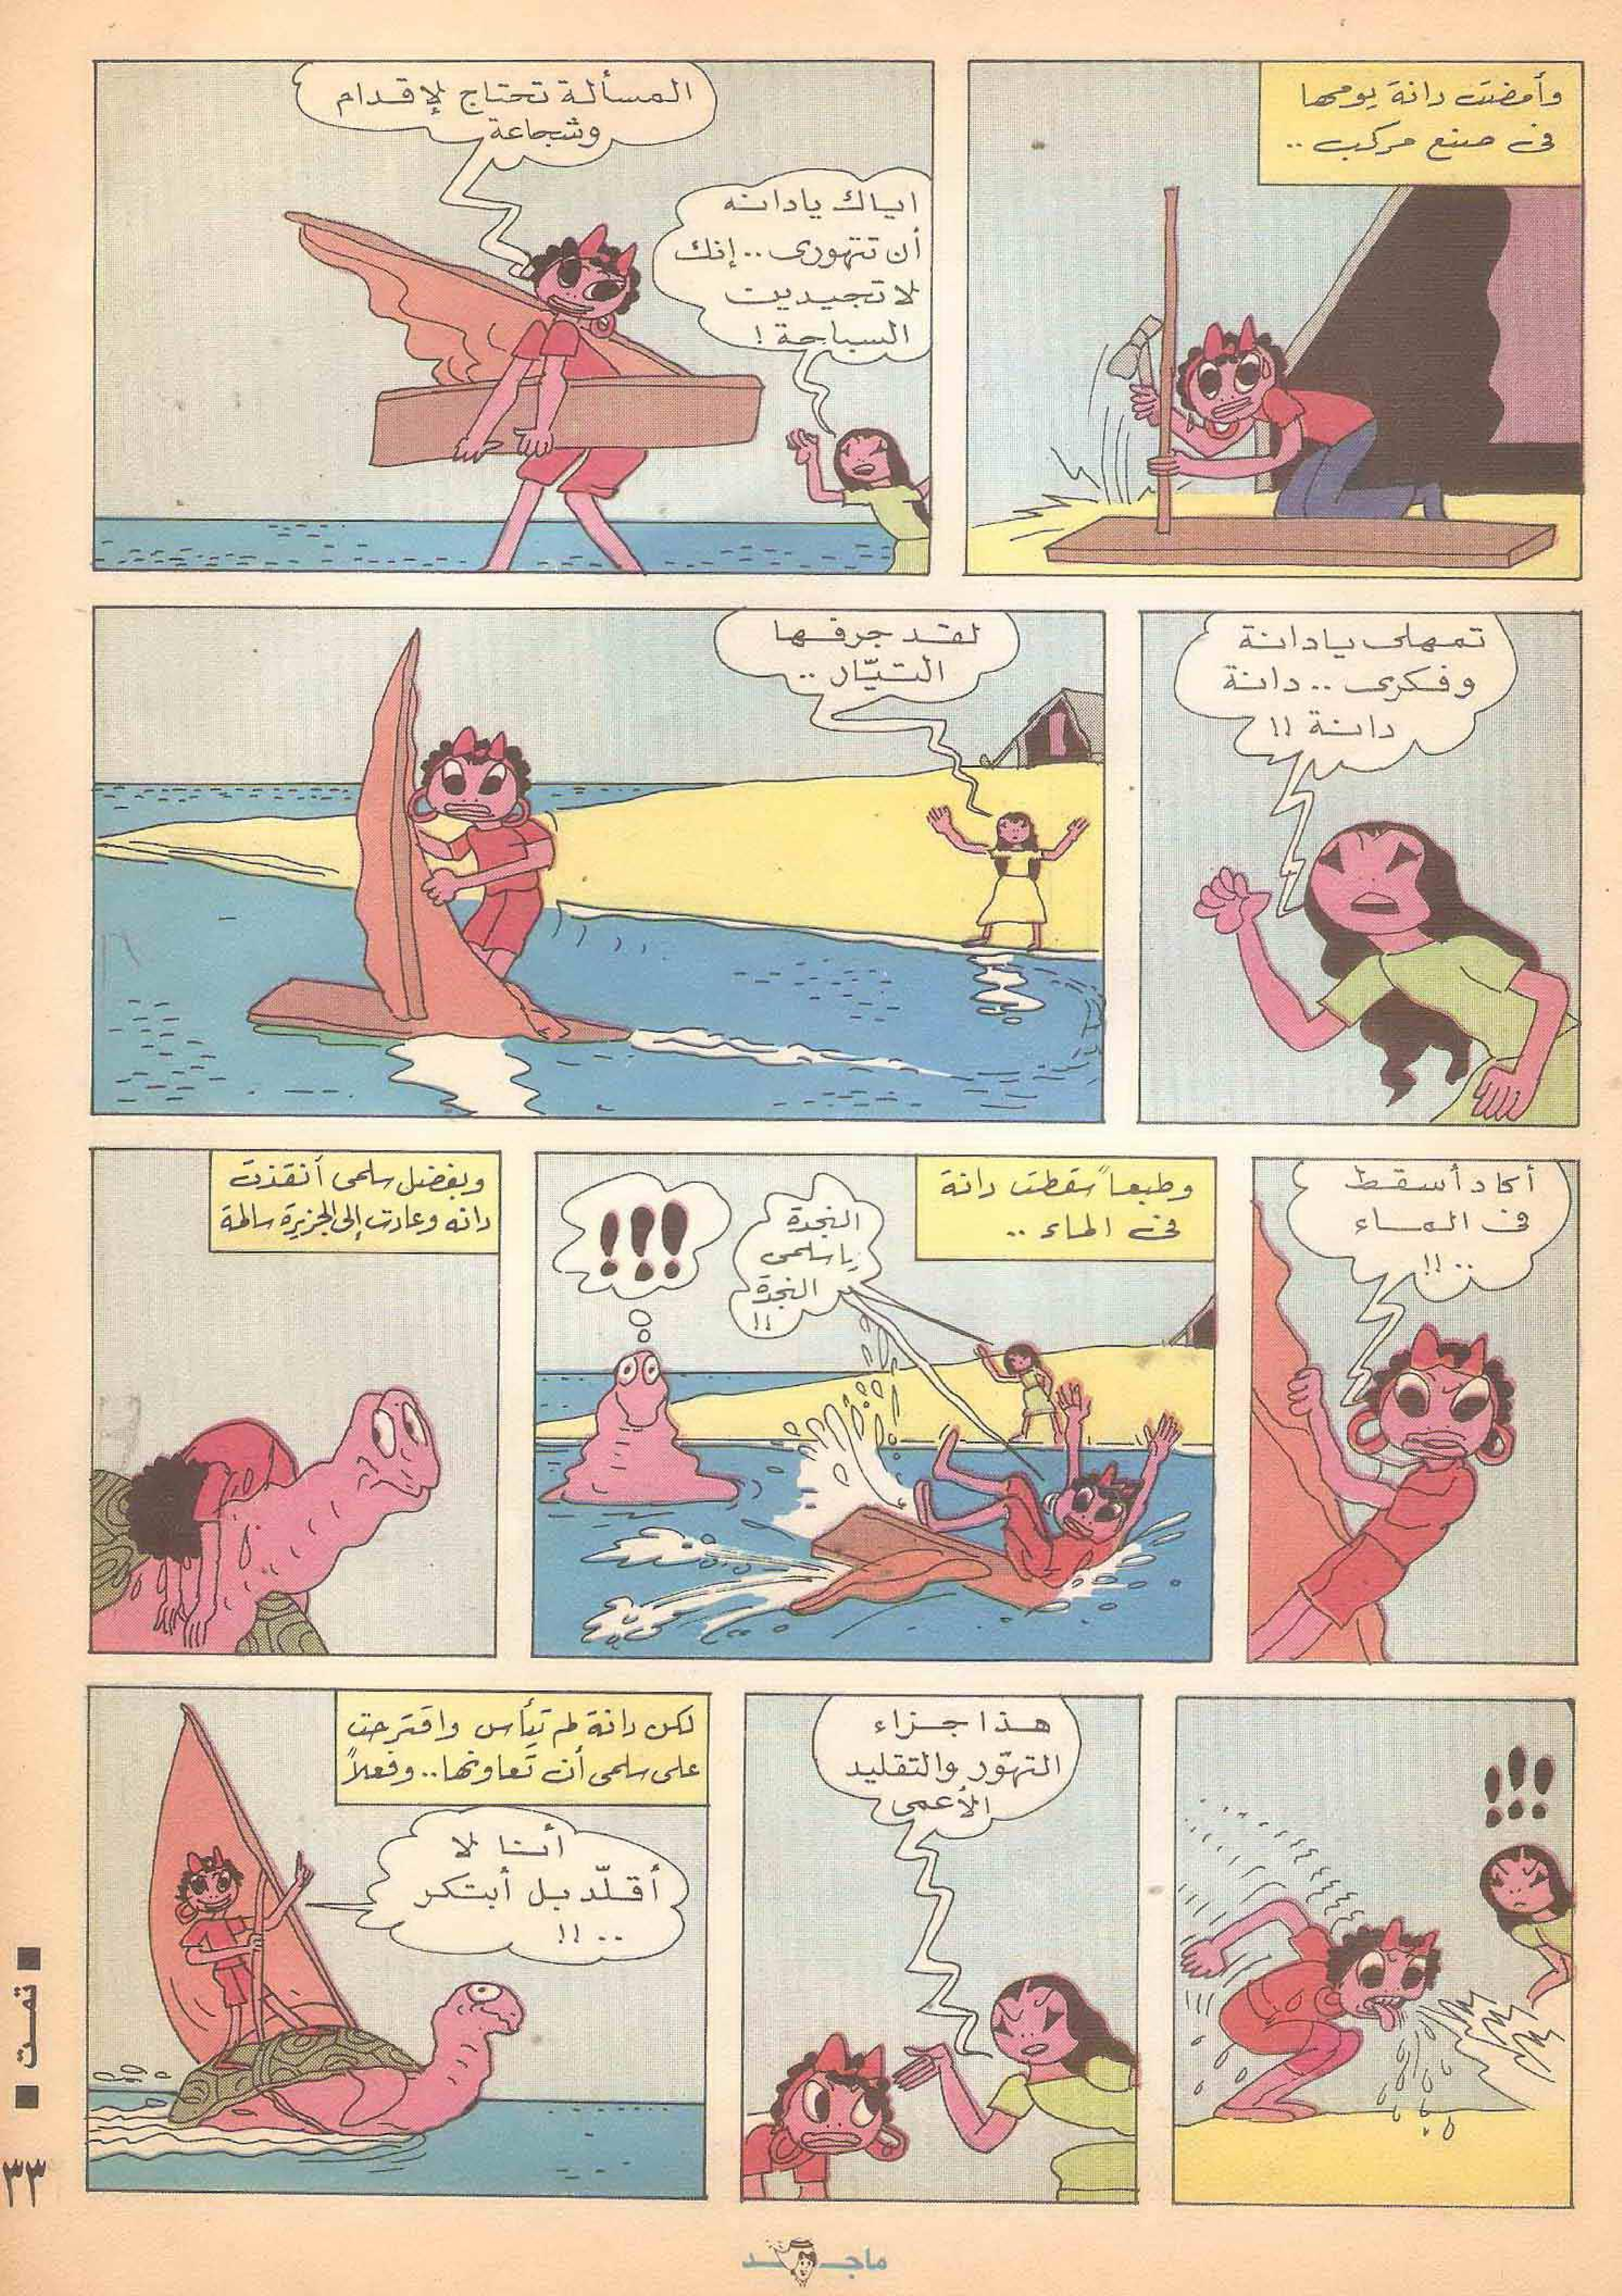 وأمضت دانة يومها
فى صنع مركب ..
المسألة تحتاج لإقدام
وشجاعة
اياك يادانه
أن تتهورى .. إنك
لا تجيدين
السباحة !
تمهلى يادانة
وفكرى .. دانة
دانة !!
لقد جرفها
التيّار ..
أكاد أسقط
فى الماء
.. !!
وطبعاً سقطت دانة
فى الماء ..
النجدة
ياسلمى
النجدة
!!
!!!
وبفضل سلمى أنقذت
دانه وعادت إلى الجزيرة سالمة
!!!
هذا جزاء
التهوّر والتقليد
الأعمى
لكن دانة لم تيأس واقترحت
على سلمى أن تعاونها .. وفعلاً
أنا لا
أقلّد بل أبتكر
.. !!
■ تمت ■
٣٣
ماجد